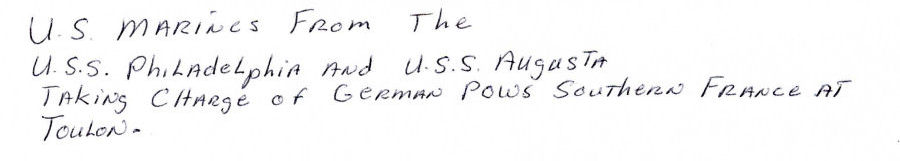 U.S. MARINES FROM The
U.S.S. PhiLAdeLphiA ANd U.S.S. AugusTA
TAkiNg CHARge of GERMAN POWS SouTheRN FRANce AT
TouLoN.